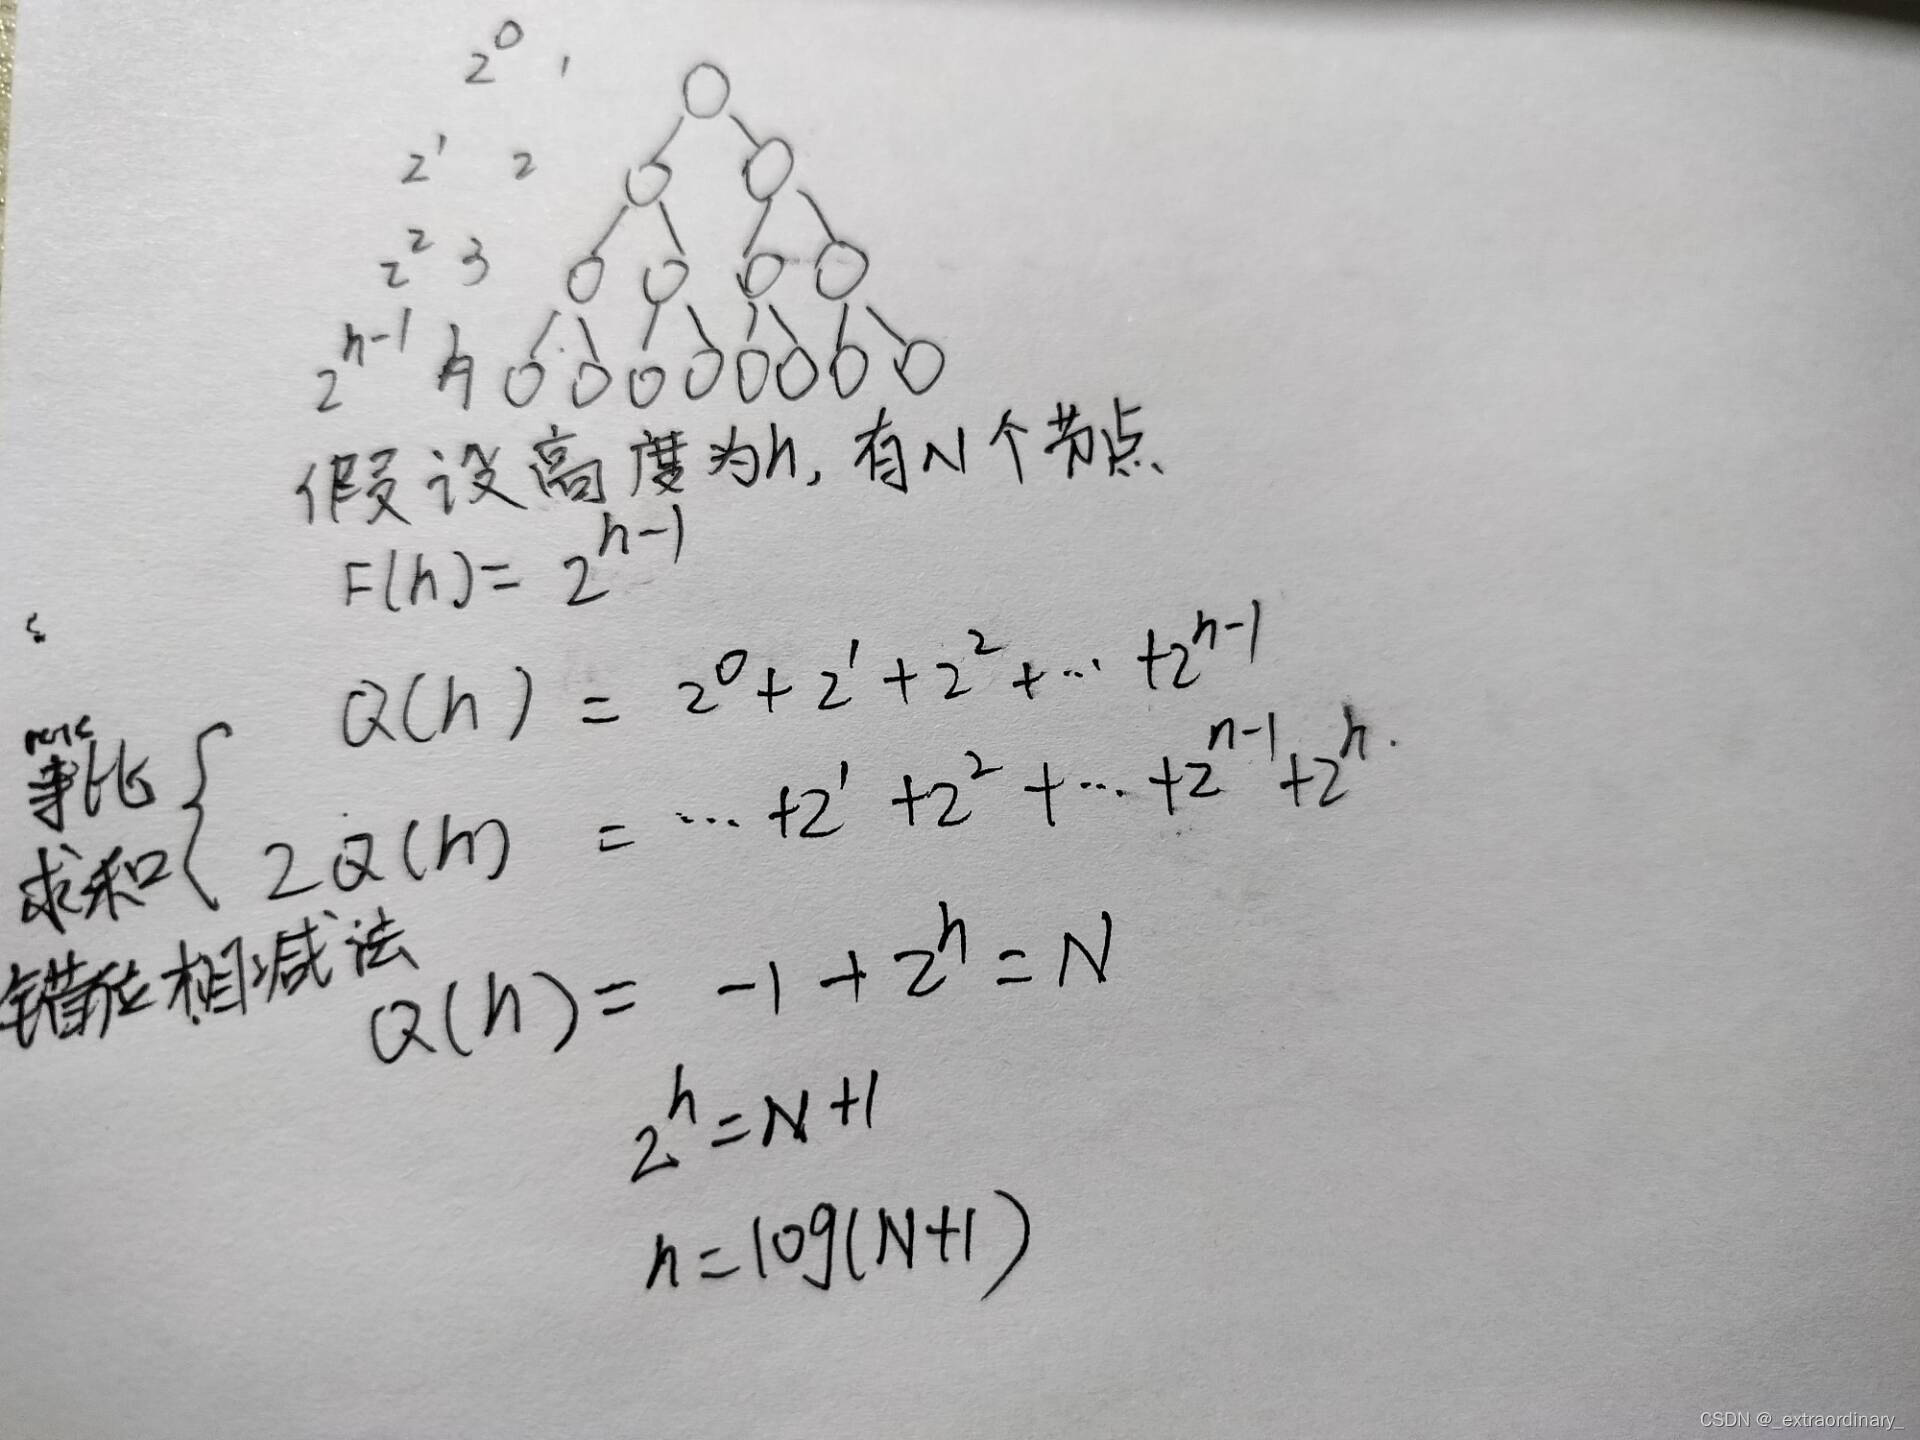 2^0 1
2^1 2
2^2 3
2^{h-1} h
假设高度为h, 有N个节点
F(h)= 2^{h-1}
Q(h) = 2^0+2^1+2^2+... +2^{h-1}
2Q(h) = ... +2^1 +2^2 +... +2^{h-1}+2^h.
比
求和
错位相减法
Q(h)= -1+2^h=N
2^h=N+1
h=log(N+1)
CSDN @_extraordinary_